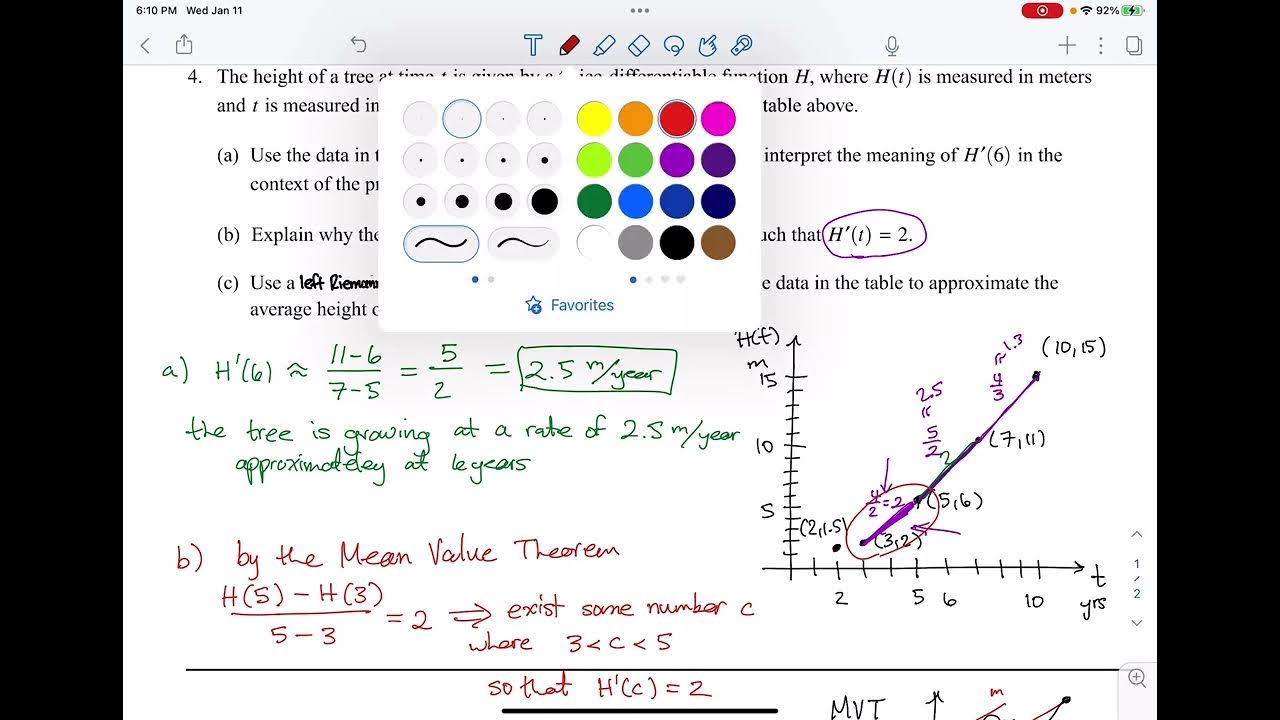 6:10 PM Wed Jan 11
92%
T
4. The height of a tree at time t is given by a differentiable function H, where H(t) is measured in meters
and t is measured in table above.
(a) Use the data in interpret the meaning of H′(6) in the
context of the
(b) Explain why the such that H′(t) = 2.
(c) Use a left Riemann data in the table to approximate the
average height
Favorites
a) H'(6) ≈ 11-6 / 7-5 = 5/2 = 2.5 m/year
the tree is growing at a rate of 2.5 m/year
approximateley at 6 years
b) by the Mean Value Theorem
H(5) - H(3) / 5-3 = 2 ⇒ exist some number c
where 3 < c < 5
so that H'(c) = 2
H(t)
m
15
10
5
2 5 6 10
t
yrs
(2,1.5)
(3,2)
(5,6)
(7,11)
(10,15)
4/2 = 2
5/2 = 2.5
2
4/3 ≈ 1.3
1
2
MVT
m